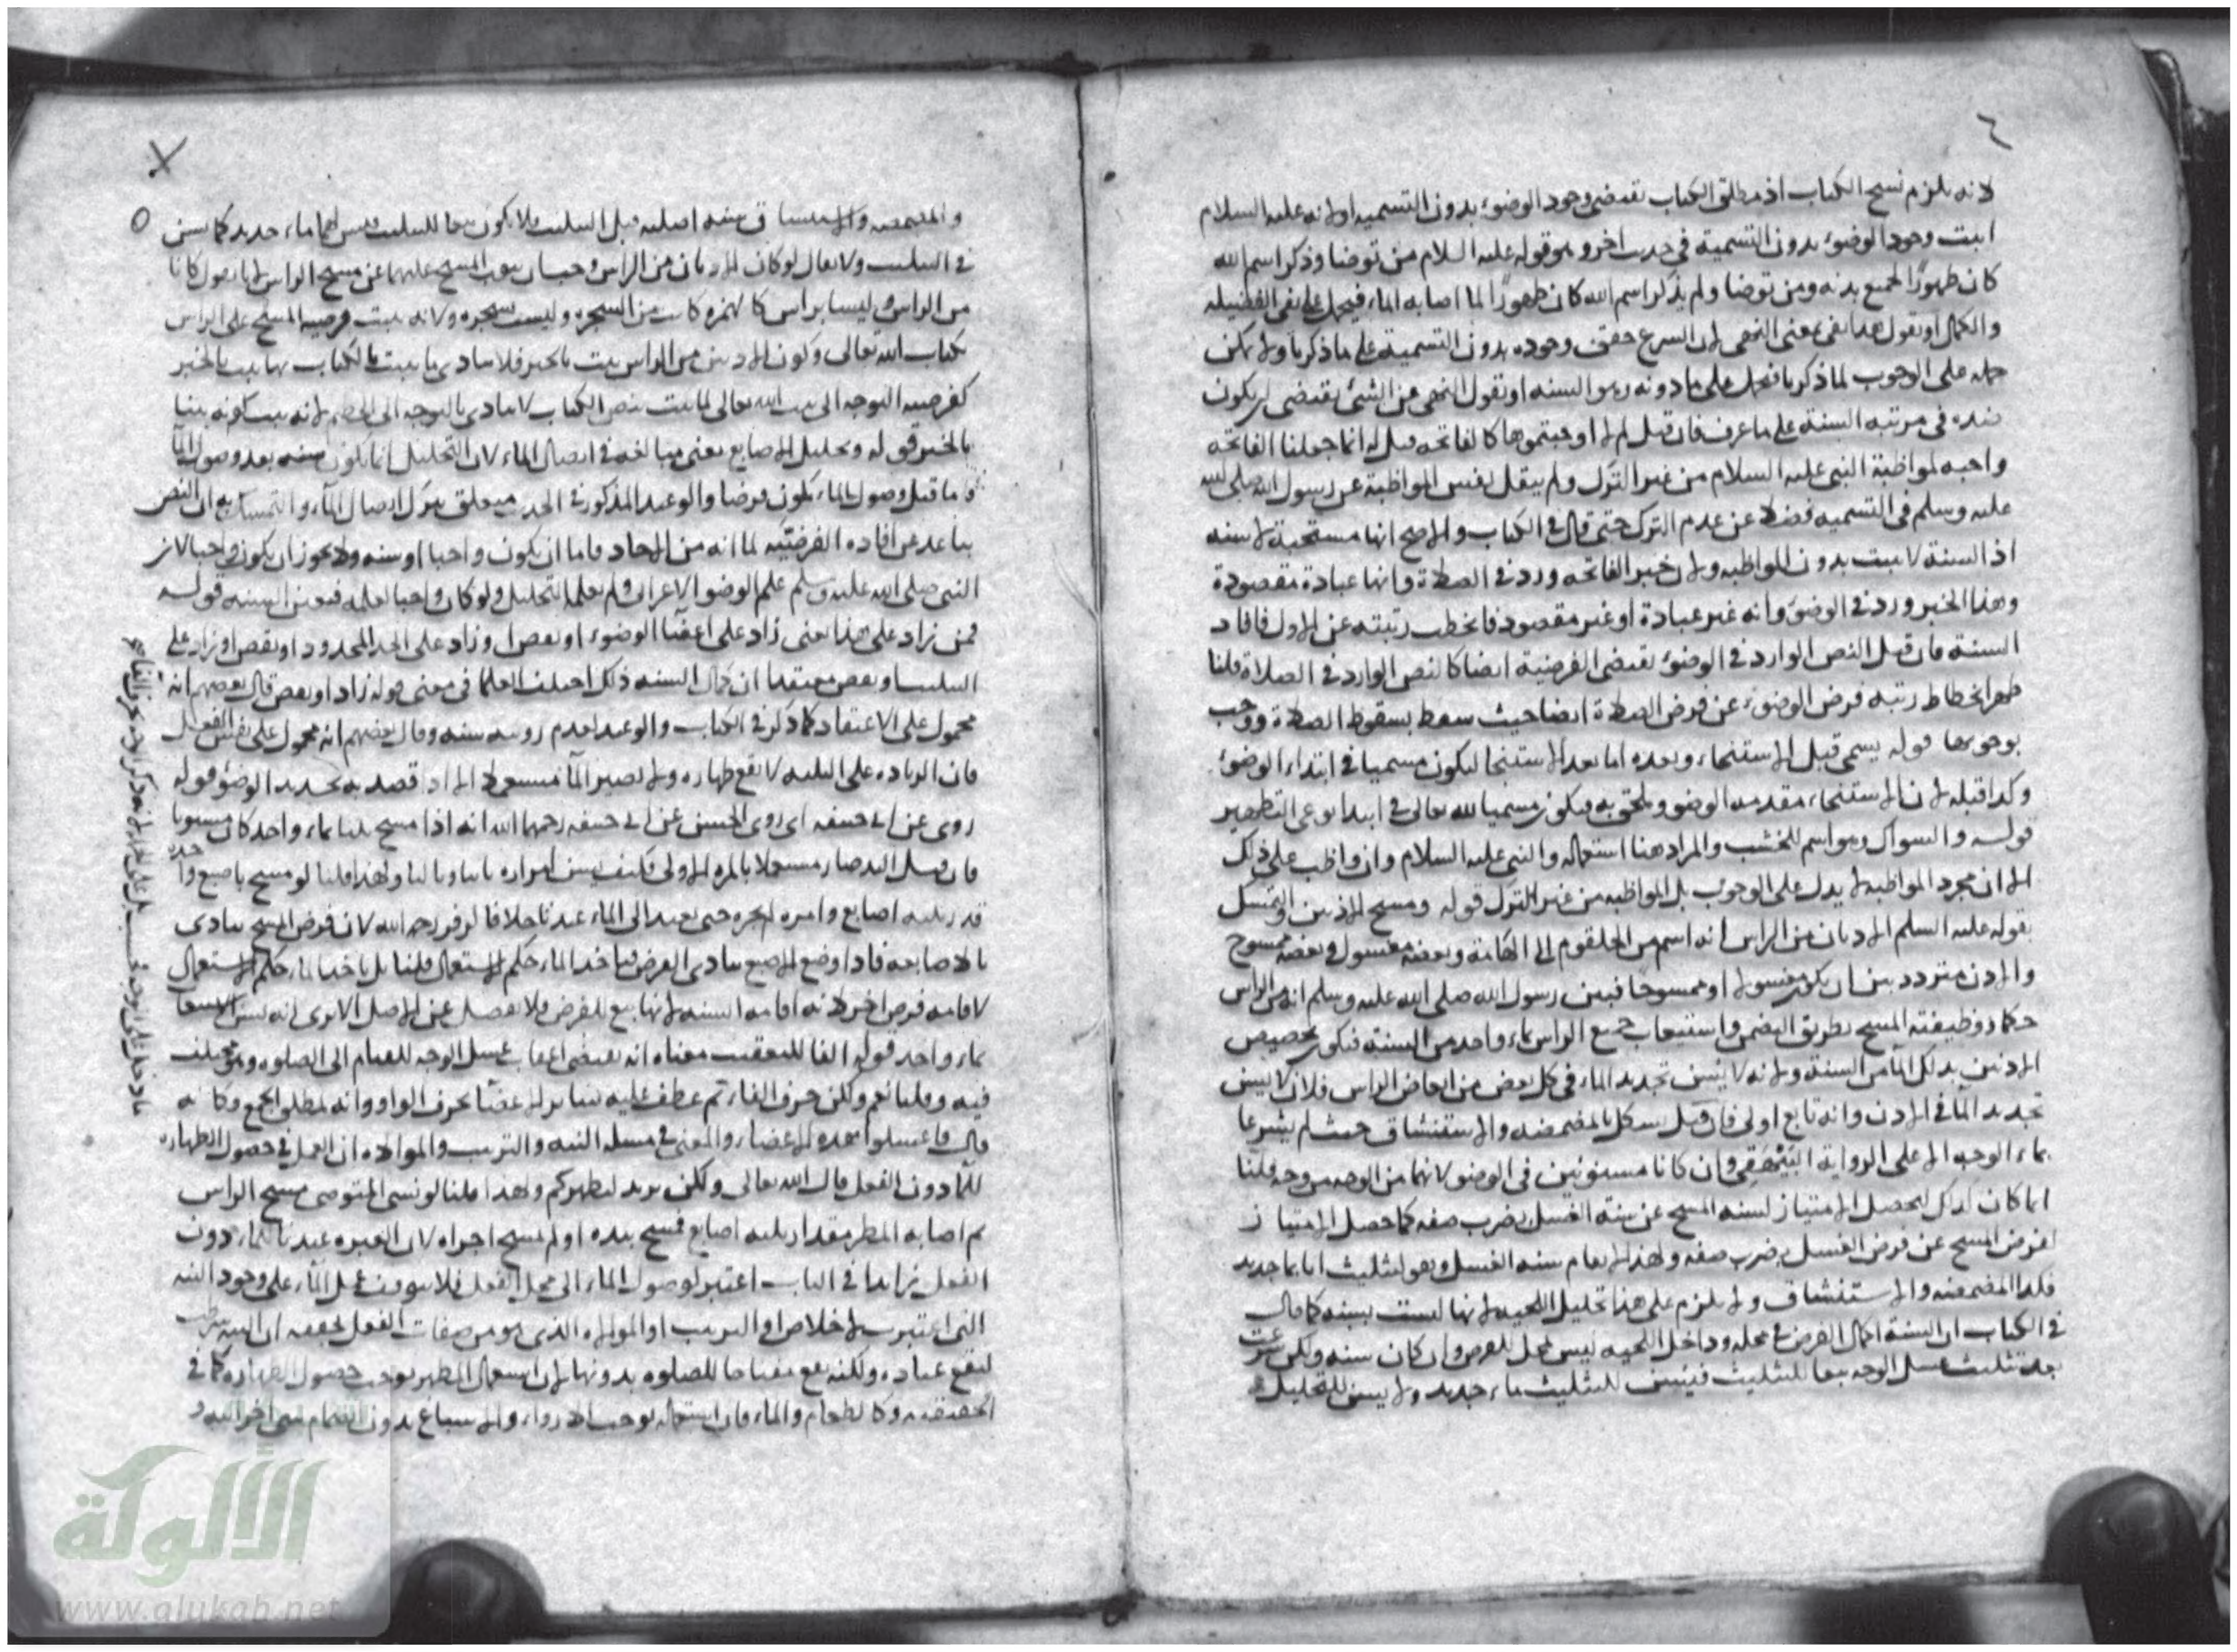 لانه يلزم نسخ الكتاب اذ مطلق الكتاب يقتضي وجود الوضوء بدون التسمية او لانه عليه السلام
اثبت وجود الوضوء بدون التسمية في حديث اخر وهو قوله عليه السلام من توضا وذكر اسم الله
كان طهورًا لجميع بدنه ومن توضا ولم يذكر اسم الله كان طهورًا لما اصابه الماء فيحمل على نفي الفضيلة
والكمال او نقول هذا نفي بمعنى النهي لان الشرع حقق وجوده بدون التسمية على ما ذكرنا ولا يمكن
حمله على الوجوب لما ذكرنا فيحمل على ما دونه وهو السنه او نقول النهي عن الشئ يقتضي ان يكون
ضده في مرتبة السنة على ما عرف فان قيل لم لا اوجبتموها كالفاتحه قيل له انما جعلنا الفاتحه
واجبه لمواظبة النبي عليه السلام من غير الترك ولم ينقل نفس المواظبة عن رسول الله صلى الله
عليه وسلم في التسميه فضلا عن عدم الترك حتى قال في الكتاب والاصح انها مستحبة لا سنه
اذ السنة لا تثبت بدون المواظبه ولان خبر الفاتحه ورد في الصلاة وانها عبادة مقصودة
وهذا الخبر ورد في الوضوء وانه غير عبادة او غير مقصود فانحطت رتبته عن الاول فافاد
السنة فان قيل النص الوارد في الوضوء يقتضي الفرضية ايضا كالنص الوارد في الصلاة قلنا
ظهر انحطاط رتبه فرض الوضوء عن فرض الصلاة ايضا حيث سقط بسقوط الصلاة ووجب
بوجوبها قوله يسمي قبل الاستنجاء وبعده اما بعد الاستنجا ليكون مسميا في ابتداء الوضوء
وكذا قبله لان الاستنجاء مقدمه الوضو وملحق به فيكون مسميا لله تعالى في ابتدا نوعي التطهير
قوله والسواك وهو اسم للخشب والمراد هنا استعماله والنبي عليه السلام وان واظب على ذلك
الا ان مجرد المواظبه لا يدل على الوجوب بل المواظبه من غير الترك قوله ومسح الاذنين والتمسك
بقوله عليه السلم الاذنان من الراس انه اسم من الحلقوم الى الهامة وبعضه مغسول وبعضه ممسوح
والاذن متردد بين ان يكون مغسولا او ممسوحًا فبين رسول الله صلى الله عليه وسلم انه من الراس
حكما وظيفته المسح بطريق التضمن واستيعاب جميع الراس بماء واحد من السنة فيكون تخصيص
الاذنين بذلك الماء من السنة ولانه لا يسن تجديد الماء في كل بعض من ابعاض الراس فلان لا يسن
تجديد الماء في الاذن وانه تابع اولى فان قيل يشكل بالمضمضه والاستنشاق حيث لم يشرعا
بماء الوجه الا على الرواية وان كانا مسنونين في الوضوء لانهما من الوجه من وجه قلنا
انما كان كذلك ليحصل الامتياز لسنه المسح عن سنة الغسل بضرب صفه كما حصل الامتياز
لفرض المسح عن فرض الغسل بضرب صفه ولهذا سنه الغسل وهو التثليث بما جديد
فكذا المضمضه والاستنشاق ولا يلزم على هذا تخليل اللحيه لانها ليست بسنه كما قال
في الكتاب ان السنة اكمال الفرض في محله وداخل اللحيه ليس بمحل للفرض وان كان سنه ولكن شرعت
بعد تثليث غسل الوجه تبعا للتثليث فيسن للتثليث ماء جديد ولا يسن للتخليل
والمضمضه والاستنشاق سنه اصليه قبل التثليث فلا يكون تبعا للتثليث فيسن لهما ماء جديد كما يسن
في التثليث ولا يقال لو كان الاذنان من الراس وجب ان ينوب المسح عليهما عن مسح الراس لانا نقول كانا
من الراس وليسا براس كالثمره كانت من الشجره وليست بشجره ولانه ثبت فرضيه المسح على الراس
بكتاب الله تعالى وكون الاذنين من الراس ثبت بالخبر فلا يتادى ما ثبت بالكتاب بما ثبت بالخبر
كفرضيه التوجه الى بيت الله تعالى لما ثبت بنص الكتاب لا يتادى بالتوجه الى الحطيم لانه ثبت كونه بيتا
بالخبر قوله وتخليل الاصابع يعني مبالغه في ايصال الماء لان التخليل انما يكون سنه بعد وصول الماء
وما قبل وصول الماء يكون فرضا والوعيد المذكور في الحديث متعلق بترك ايصال الماء والتمسك به ان النص
ساعد عن افاده الفرضيه لما انه من الاحاد فاما ان يكون واجبا او سنه ولا يجوز ان يكون واجبا لان
النبي صلى الله عليه وسلم علم الوضو الاعرابي ولم يعلمه التخليل ولو كان واجبا لعلمه فتعين السنه قوله
فمن زاد على هذا يعني زاد على اعضا الوضوء او نقص او زاد على الحد المحدود او نقص او زاد على
الثلث او نقص معتقدا ان كمال السنه ذلك اختلف العلما في معنى قوله زاد او نقص قال بعضهم انه
محمول على الاعتقاد كما ذكر في الكتاب والوعيد لعدم رويته سنه وقال بعضهم انه محمول على نفس الفعل
فان الزياده على الثلثه لا يقع طهاره ولا يصير الماء مستعملا الا اذا قصد به تجديد الوضوء قوله
روى عن ابي حنيفه اي روى الحسن عن ابي حنيفه رحمهما الله انه اذا مسح ثلثا بماء واحد كان مسنونا
فان قيل البلة صار مستعملا بالمره الاولى فكيف يسن امراره ثانيا وثالثا ولهذا قلنا لو مسح باصبع واحده
قدر ثلثه اصابع وامره لم يجزه حتى يعيد الى الماء عندنا خلافا لزفر رحمه الله لان فرض المسح يتادى
بالاصابه فاذا وضع الاصبع يتادى الفرض فياخذ الماء حكم الاستعمال قلنا بل ياخذ الماء حكم الاستعمال
لاقامه فرض اخر لانه اقامه السنه لانها تبع للفرض فلا يفصل عن الاصل الا يرى انه يسن الاستيعاب
بماء واحد قوله الفا للتعقيب معناه انه يقتضي اعقاب غسل الوجه للقيام الى الصلوه وهو مختلف
فيه وقلنا نعم ولكن حرف الفاء ثم عطف عليه سائر الاعضا بحرف الواو وانه لمطلق الجمع وكانه
قال فاغسلوا هذه الاعضاء والمعنى في مسله النيه والترتيب والموالاه ان العمل في حصول الطهاره
للماء دون الفعل قال الله تعالى ولكن يريد ليطهركم ولهذا قلنا لو نسي المتوضي مسح الراس
ثم اصابه المطر مقدار ثلثه اصابع فمسح بيده او لم يمسح اجزاه لان العبره عندنا للماء دون
الفعل في الباب اعتبر لوصول الماء الى محل الفعل فلا يتوقف عمل الماء على وجود النيه
التي اعتبرت لاخلاص او الترتيب او الموالاه الذي هو من صفات الفعل ان النيه شرطت
ليقع عباده ولكنه يقع مفتاحا للصلوه بدونها لان استعمال المطهر يوجب حصول الطهاره كما في
الحقيقيه وكالطعام والماء فان استعماله يوجب الارواء والاشباع بدون انضمام شي اخر اليه
الألوكة
www.alukah.net